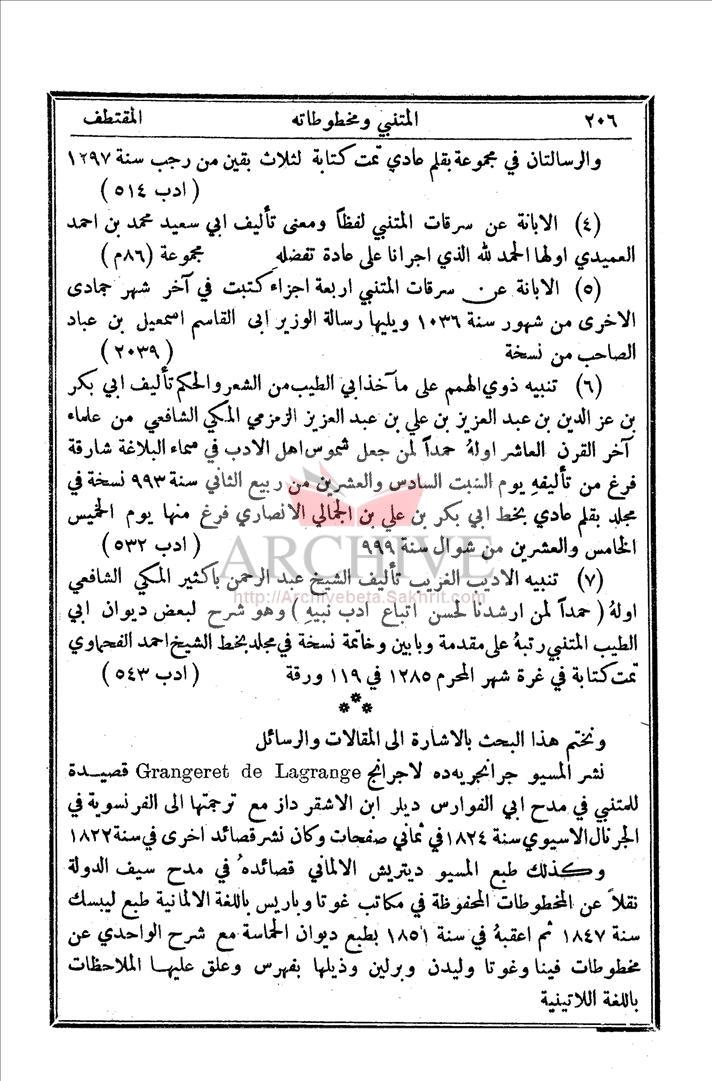 ٢٠٦ المتنبي ومخطوطاته المقتطف
والرسالتان في مجموعة بقلم عادي تمت كتابة لثلاث بقين من رجب سنة ١٢٩٧
( ادب ٥١٤ )
(٤) الابانة عن سرقات المتنبي لفظاً ومعنى تأليف ابي سعيد محمد بن احمد
العميدي اولها الحمد لله الذي اجرانا على عادة تفضله مجموعة (٨٦م )
(٥) الابانة عن سرقات المتنبي اربعة اجزاء كتبت في آخر شهر جمادى
الاخرى من شهور سنة ١٠٣٦ ويليها رسالة الوزير ابى القاسم اسمعيل بن عباد
الصاحب من نسخة ( ٢٠٣٩ )
(٦) تنبيه ذوي الهمم على مآخذ ابي الطيب من الشعر والحكم تأليف ابي بكر
بن عز الدين بن عبد العزيز بن علي بن عبد العزيز الزمزمي المكي الشافعي من علماء
آخر القرن العاشر اولهُ حمداً لمن جعل شموس اهل الادب في سماء البلاغة شارقة
فرغ من تأليفهِ يوم السبت السادس والعشرين من ربيع الثاني سنة ٩٩٣ نسخة في
مجلد بقلم عادي بخط ابي بكر بن علي بن الجمالي الانصاري فرغ منها يوم الخميس
الخامس والعشرين من شوال سنة ٩٩٩ ( ادب ٥٣٢ )
ARCHIVE
http://Archivebeta.Sakhrit.com
(٧) تنبيه الاديب الغريب تأليف الشيخ عبد الرحمن باكثير المكي الشافعي
اولهُ ( حمداً لمن ارشدنا لحسن اتباع ادب نبيهِ ) وهو شرح لبعض ديوان ابي
الطيب المتنبي رتبهُ على مقدمة وبابين وخاتمة نسخة في مجلد بخط الشيخ احمد الفحماوي
تمت كتابة في غرة شهر المحرم ١٢٨٥ في ١١٩ ورقة ( ادب ٥٤٣ )
***
ونختم هذا البحث بالاشارة الى المقالات والرسائل
نشر المسيو جرانجريه ده لاجرانج Grangeret de Lagrange قصيدة
للمتنبي في مدح ابي الفوارس ديلر ابن الاشقر داز مع ترجمتها الى الفرنسوية في
الجرنال الاسيوي سنة ١٨٢٤ في ثماني صفحات وكان نشر قصائد اخرى في سنة ١٨٢٢
وكذلك طبع المسيو ديتريش الالماني قصائدهُ في مدح سيف الدولة
نقلاً عن المخطوطات المحفوظة في مكاتب غوتا وباريس باللغة الالمانية طبع ليبسك
سنة ١٨٤٧ ثم اعقبهُ في سنة ١٨٥١ بطبع ديوان الحماسة مع شرح الواحدي عن
مخطوطات فينا وغوتا وليدن وبرلين وذيلها بفهرس وعلق عليها الملاحظات
باللغة اللاتينية